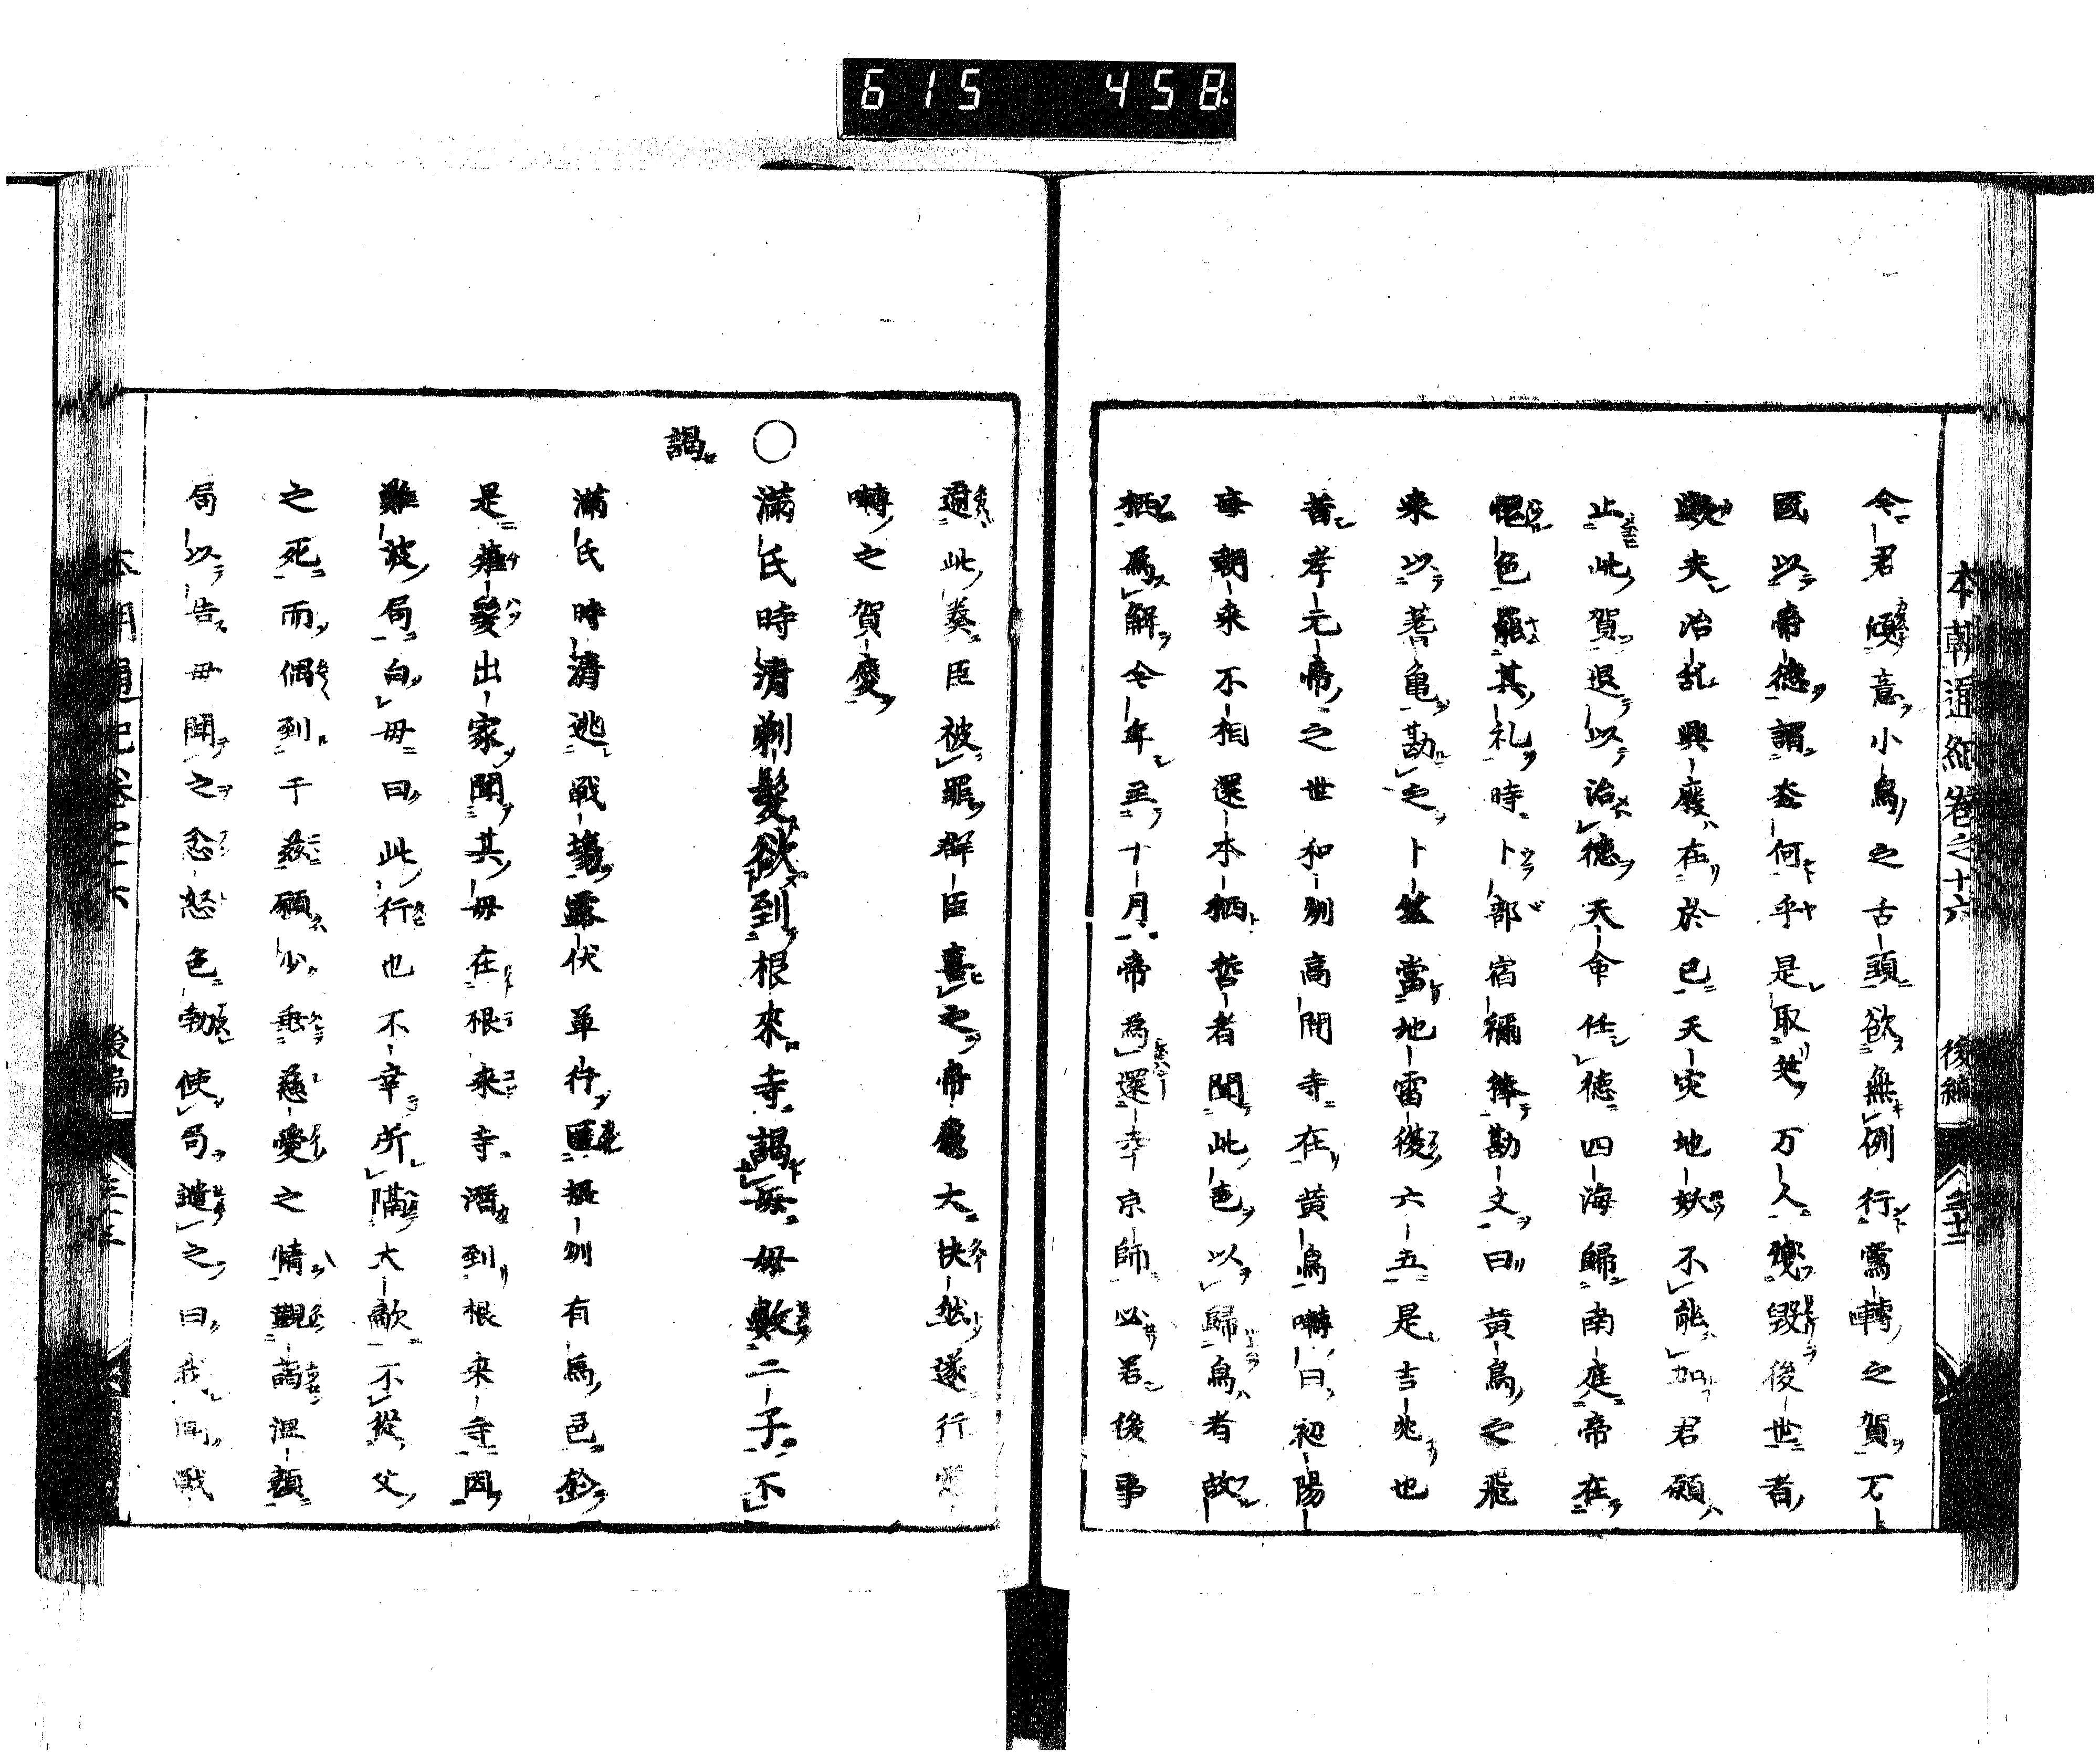 615 458
本朝通紀卷之十六 後編 三十二
今君傾意小鳥之舌頭欲無例行鶯囀之賀万
國以帝德謂奈何乎是取笑万人殘毀後世者
歟夫治乱興廢在於己天灾地妖不能加君願
止此賀退以治德天命任德四海歸南庭帝在
愠色罷其礼時卜部宿祢捧勘文曰黄鳥之飛
来以蓍亀勘之卜筮當地雷復六五是吉兆也
昔孝元帝之世和州高間寺在黄鳥囀曰初陽
每朝来不相還本栖哲者聞此色以歸鳥者故
栖爲解今年至十月帝為還幸京師必若後事
違此奏臣被罪群臣喜之帝處大快然遂行鶯
囀之賀宴
○滿氏時清剃髮欲到根來寺謁母母數二子不
謁
滿氏時清逃戰塲露伏草行匿揺州有馬邑於
是薙髮出家聞其母在根来寺潛到根来寺因
難波局白母曰此行也不幸所隔大敵不從父
之死而偶到于茲願少垂慈愛之情覲謁温顔
局以告母聞之忿怒色勃使局譴之曰我聞戰
後編